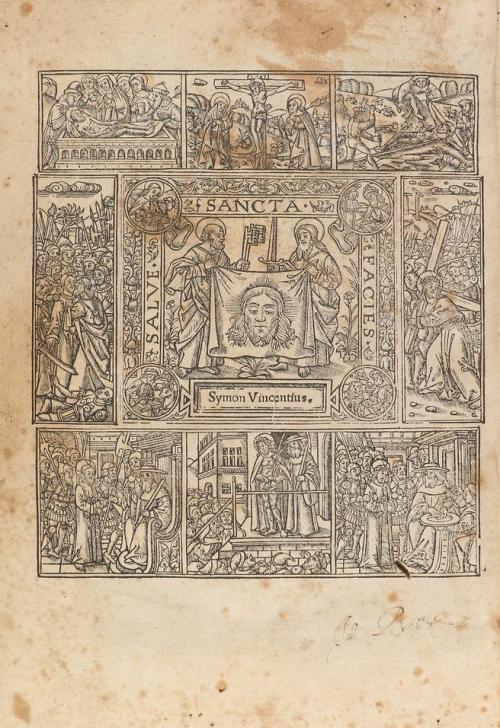 SALVE
SANCTA
FACIES
Symon Vincentius.